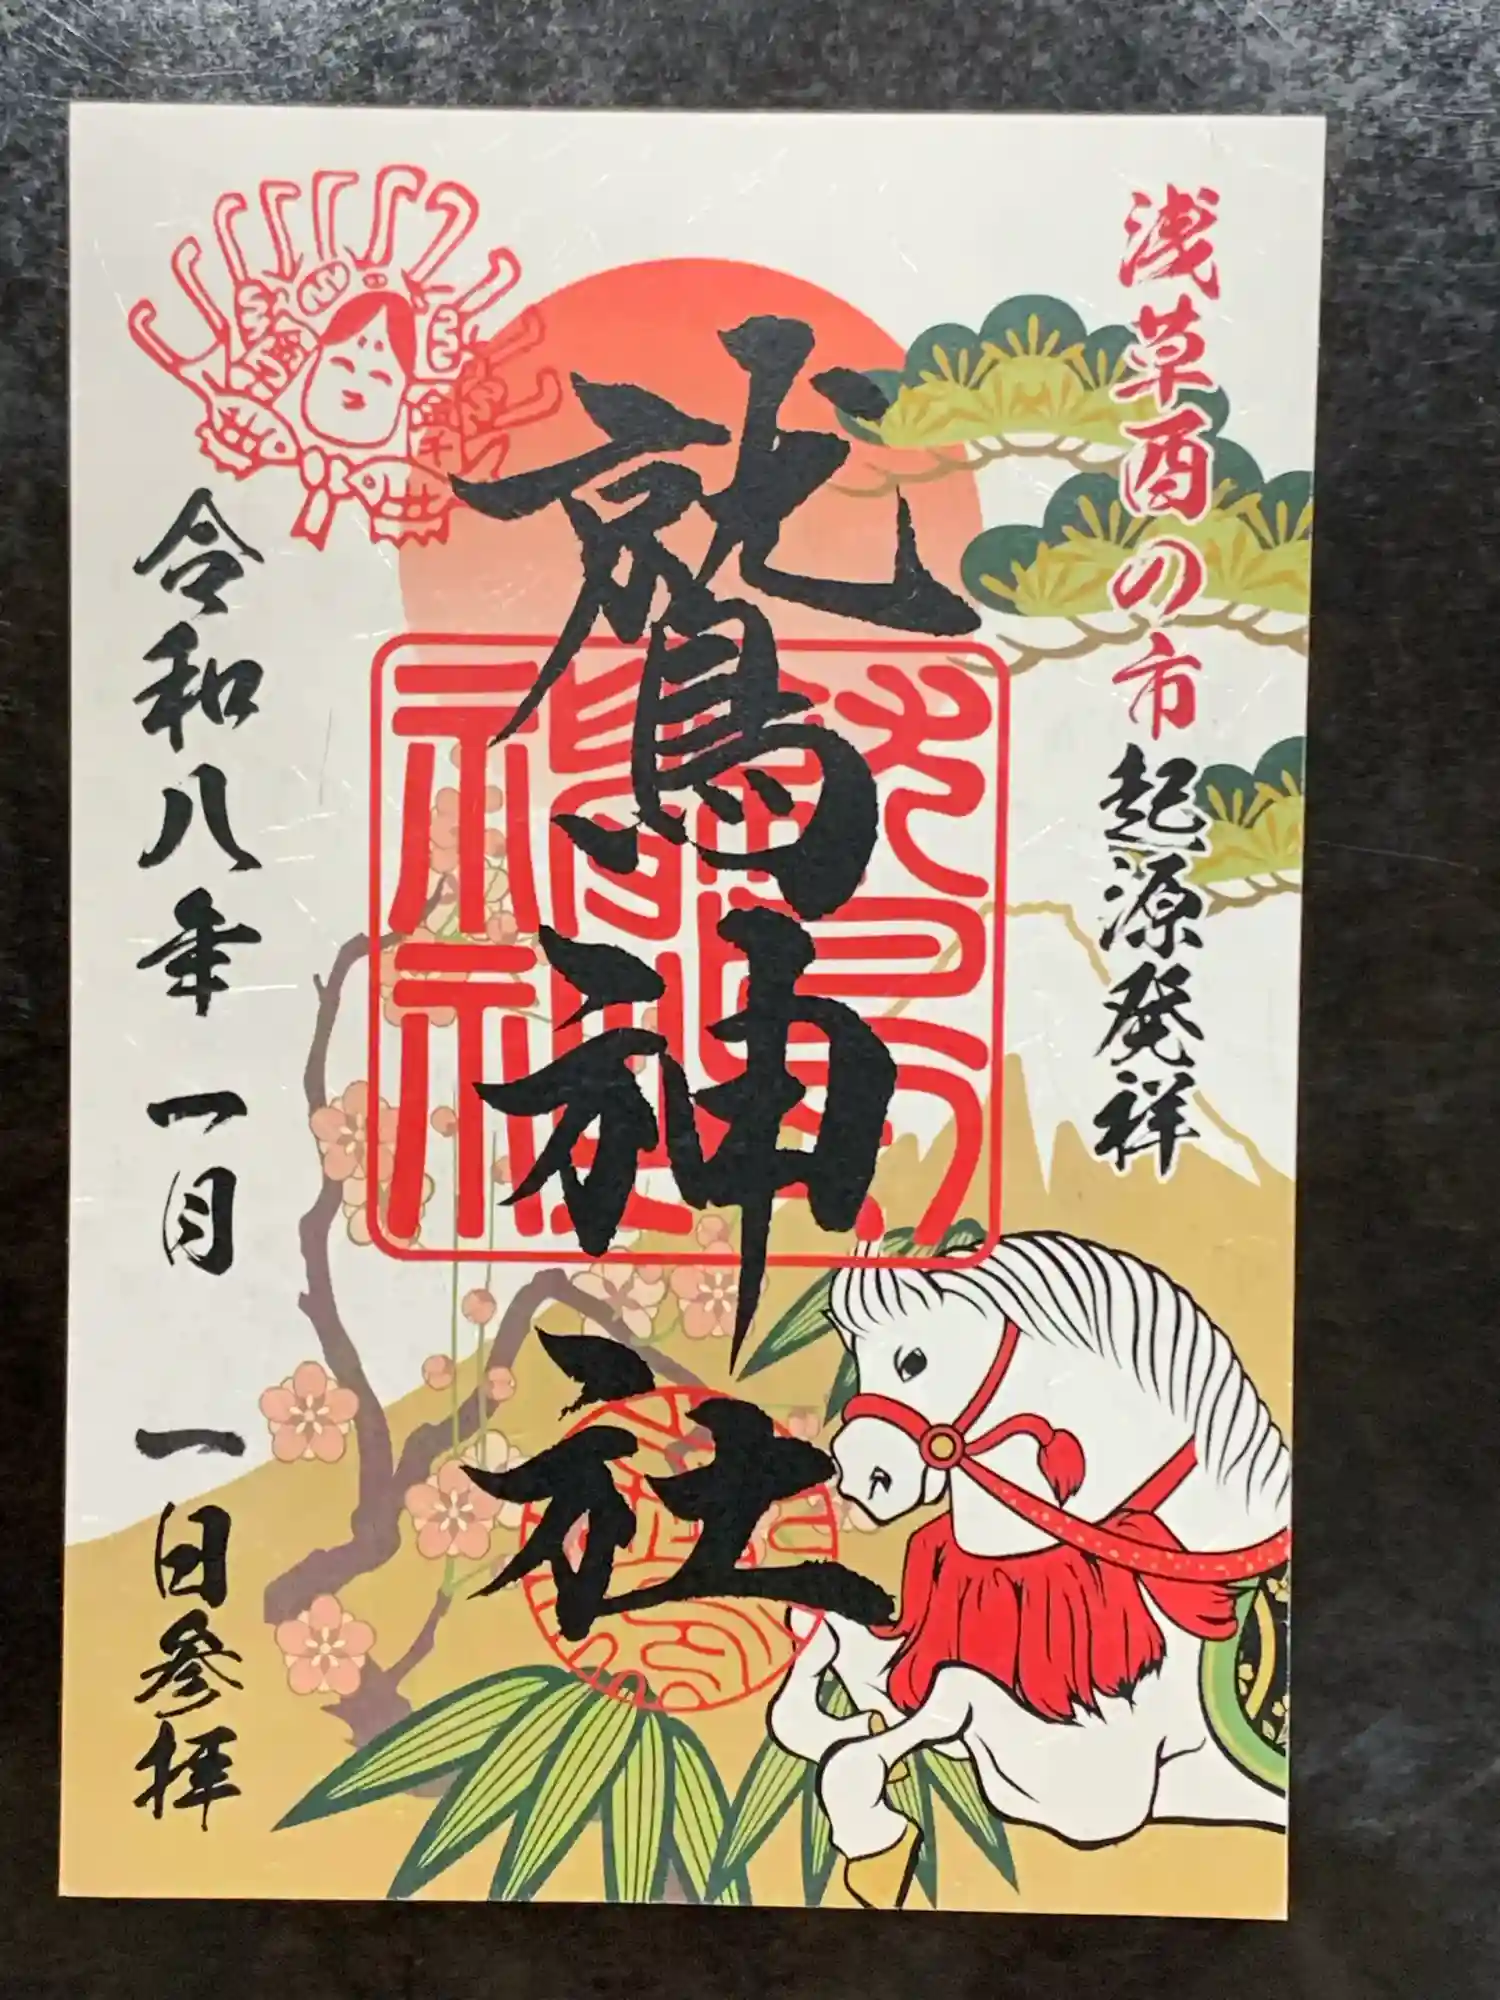 浅草酉の市起源発祥
鷲神社
令和八年 一月 一日参拝